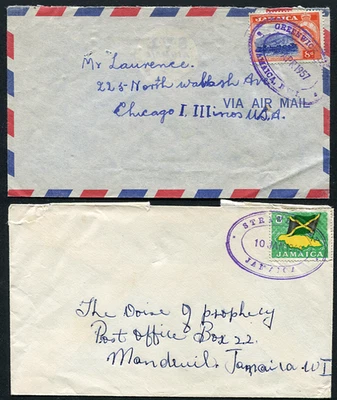 JAMAICA
8d
GREENWICH
1957
JAMAICA
Mr Laurence.
225 North Wabash Ave
Chicago I Illinos U.S.A.
VIA AIR MAIL
STRA
10 JA
JAMAICA
JAMAICA
The Voice of prophecy
Post Office Box 22.
Mandeuils Jamaica WI